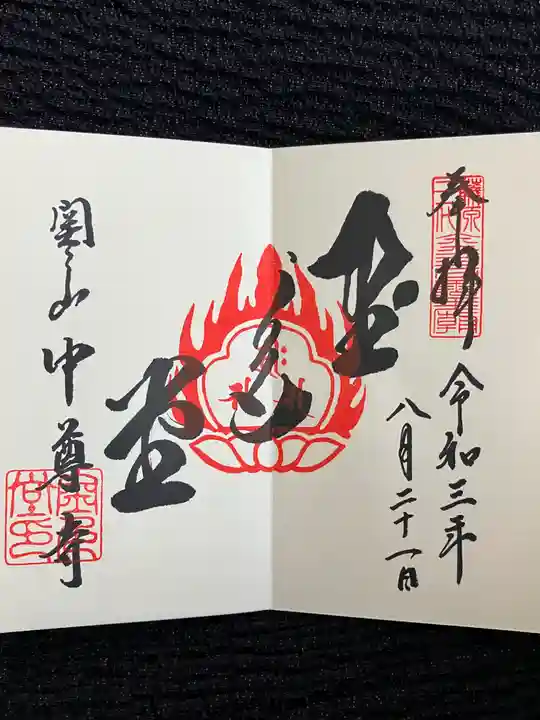 奉拝
令和三年
八月二十一日
金色堂
関山
中尊寺
金色堂印